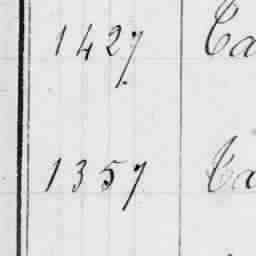 1427 Ca
1357 Ca